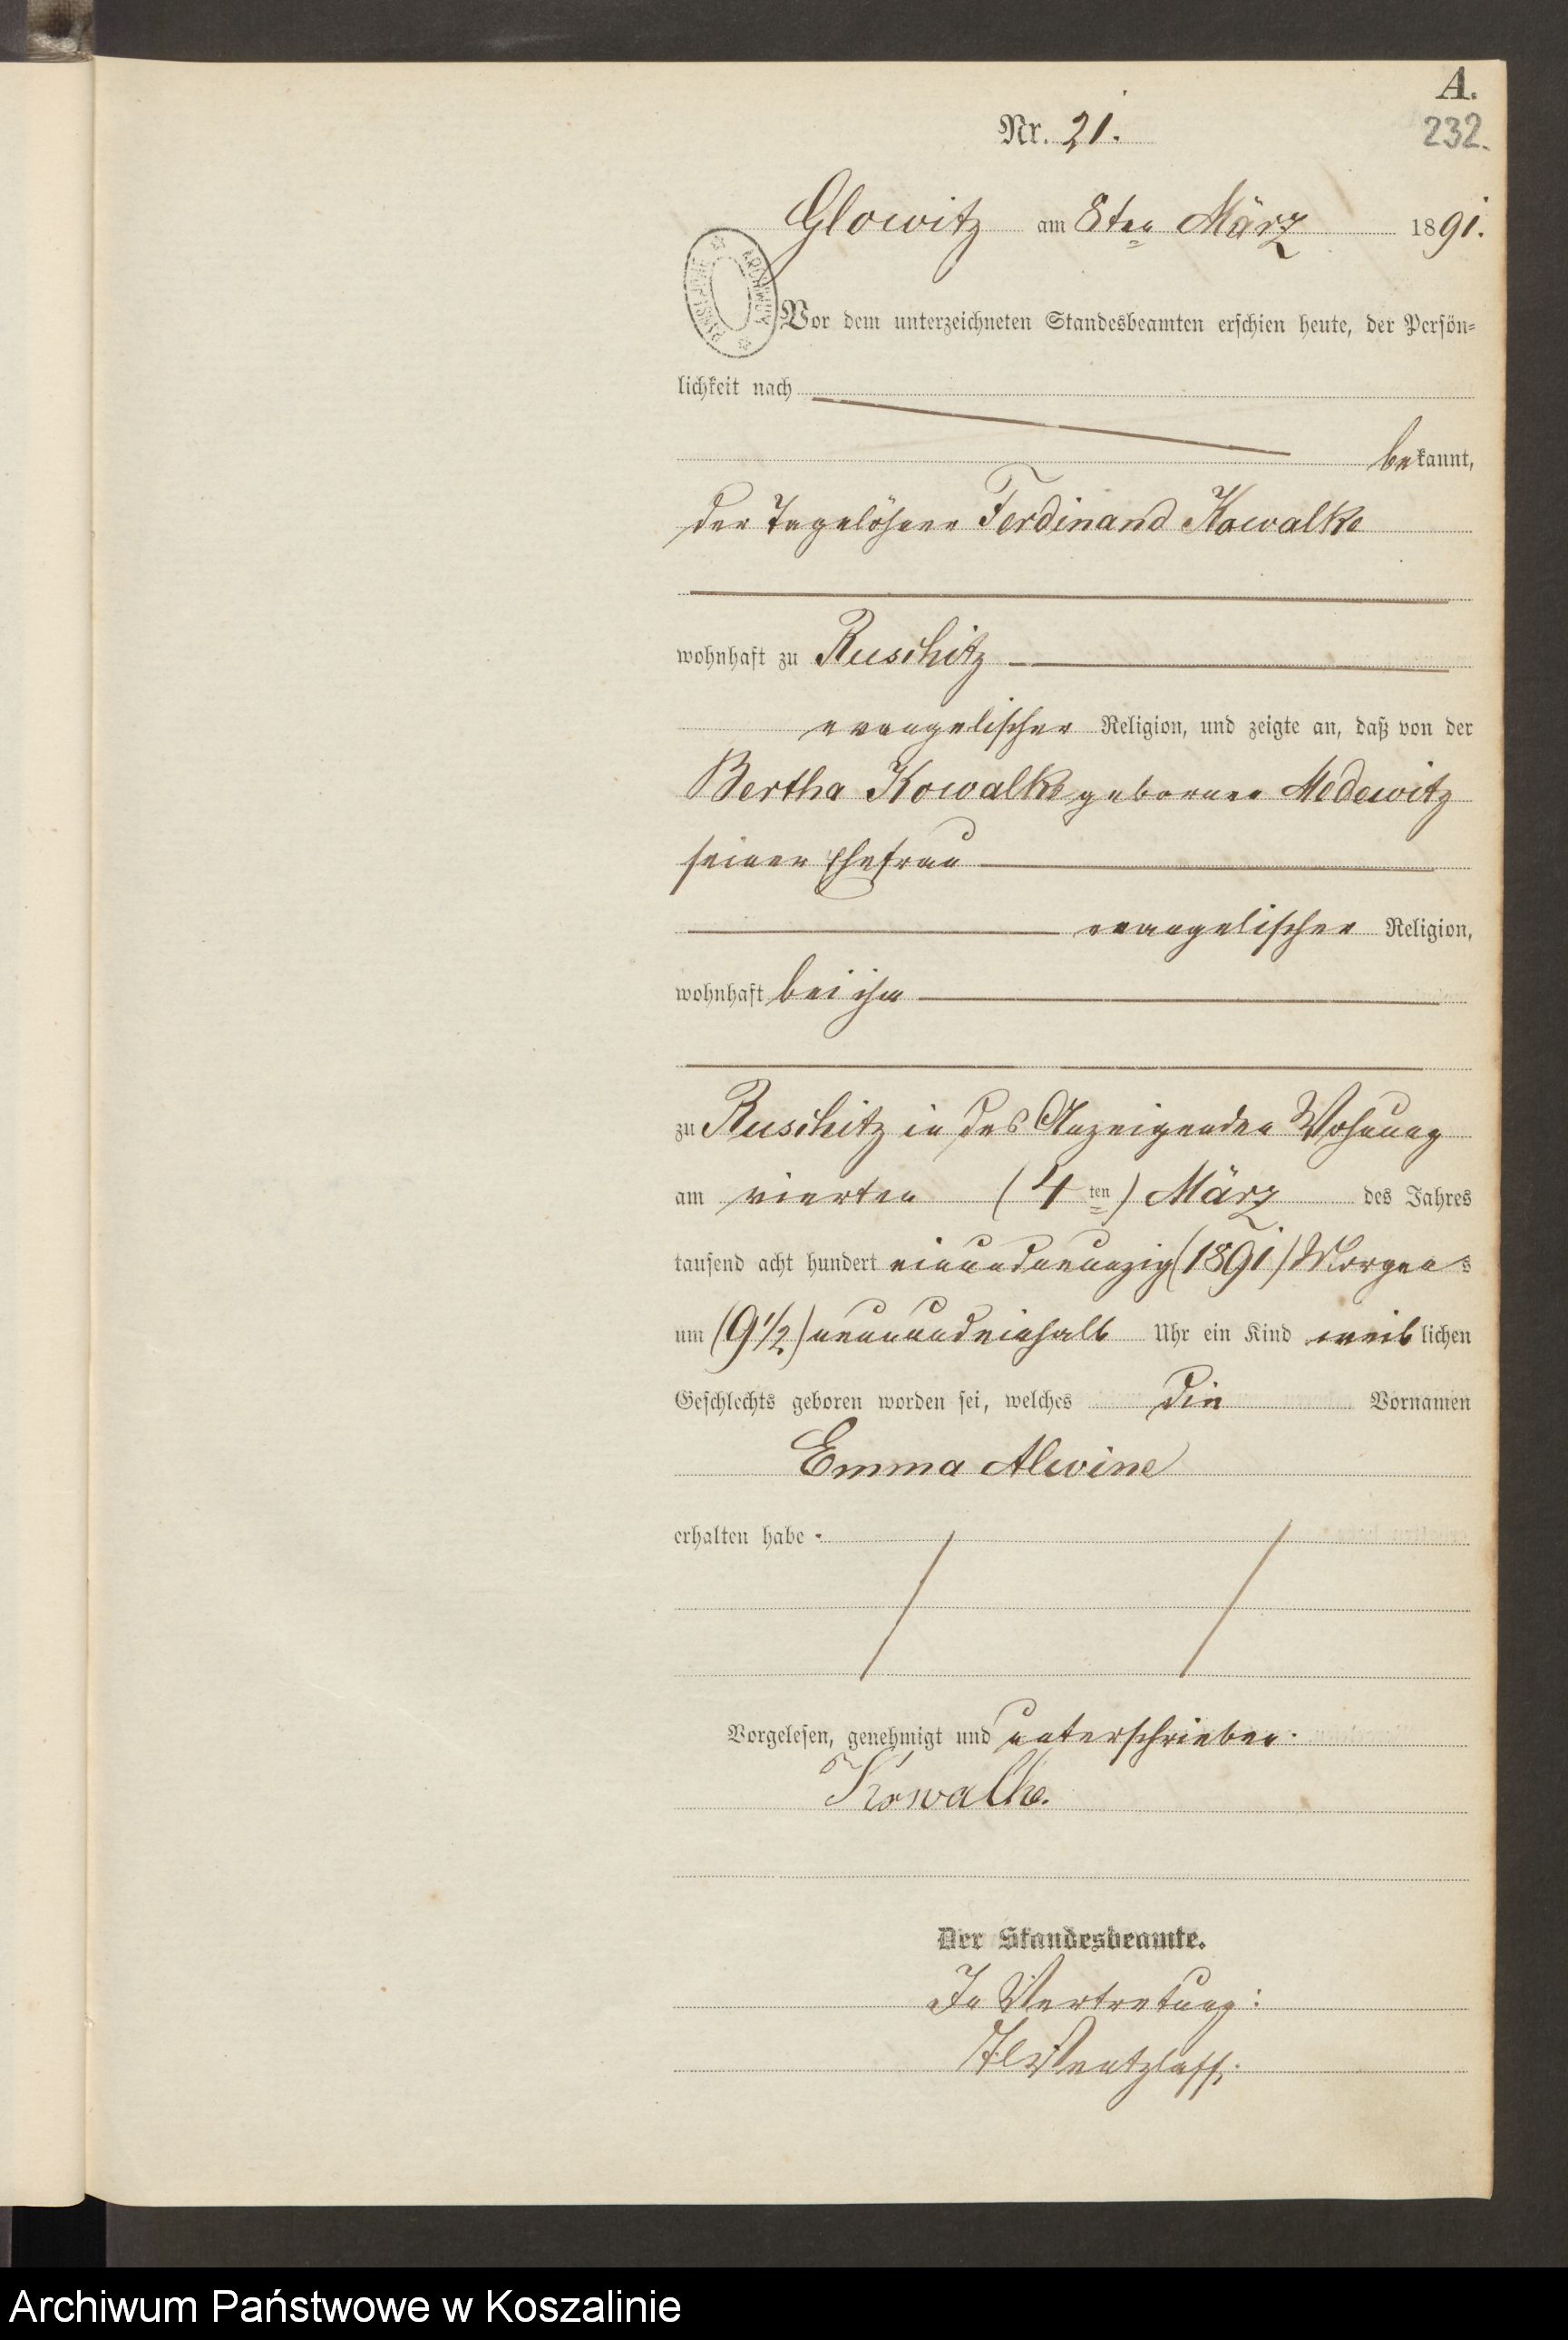 A.
Nr. 21.
232.
Glowitz am 8ten März 1891.
ARCHIWUM PAŃSTWOWE
Vor dem unterzeichneten Standesbeamten erschien heute, der Persön-
lichkeit nach
bekannt,
der Tagelöhner Ferdinand Kowalke
wohnhaft zu Ruschitz
evangelischer Religion, und zeigte an, daß von der
Bertha Kowalke geborner Medewitz
seiner Ehefrau
evangelischer Religion,
wohnhaft bei ihm
zu Ruschitz in des Anzeigenden Wohnung
am vierten (4ten) März des Jahres
tausend acht hundert einundneunzig (1891) Morgens
um (9 1/2) neunundeinhalb Uhr ein Kind weiblichen
Geschlechts geboren worden sei, welches die Vornamen
Emma Alwine
erhalten habe.
Vorgelesen, genehmigt und unterschrieben.
Kowalke.
Der Standesbeamte.
In Vertretung:
Wentzlaff.
Archiwum Państwowe w Koszalinie